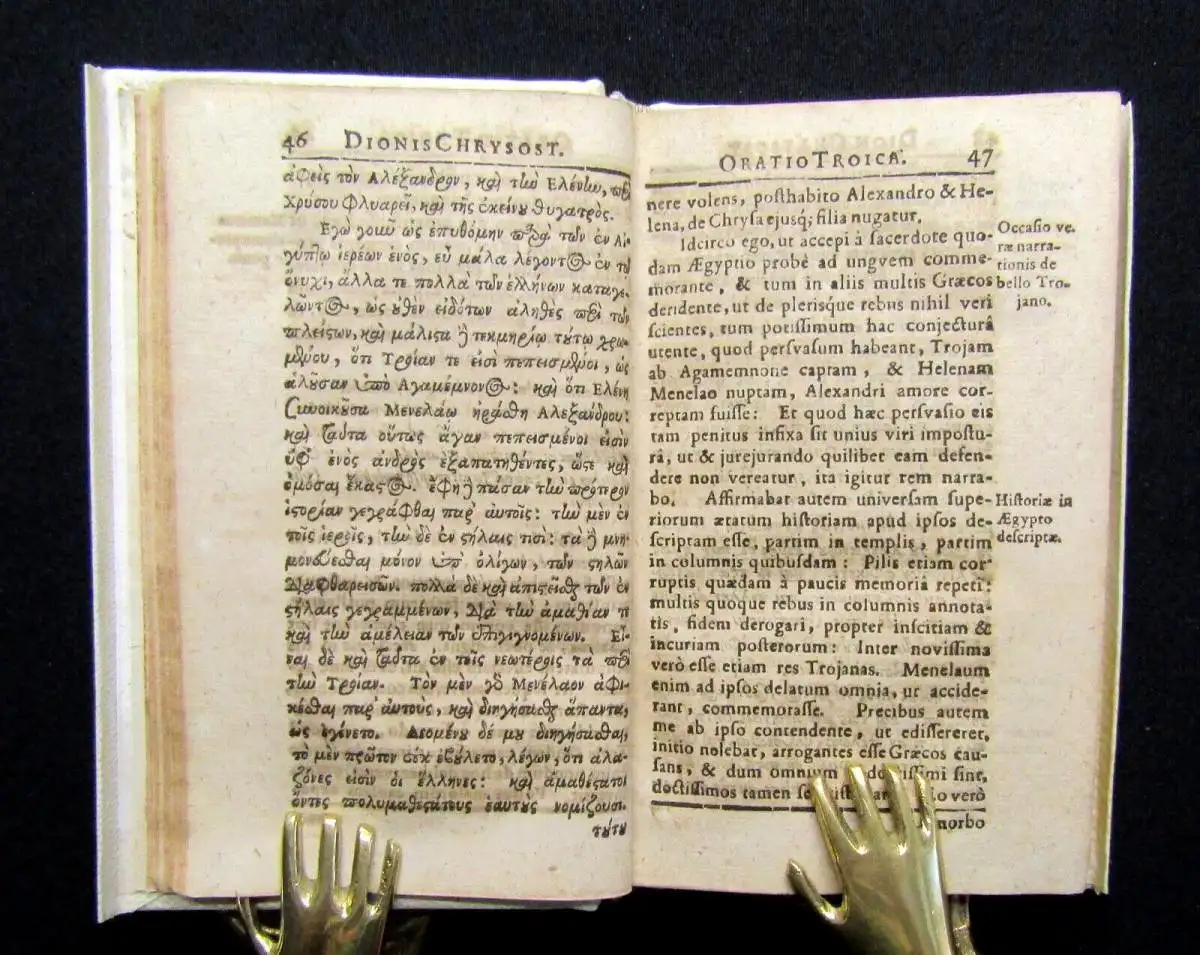 46 DIONIS CHRYSOST.
ἀφεὶς τὸν Αλέξανδρον, καὶ τὴν Ελένην, περὶ
Χρύσου φλυαρεῖ, καὶ τῆς ἐκείνου θυγατρός.
Εγὼ γοῦν ὡς ἐπυθόμην παρὰ τῶν ἐν Αἰ-
γύπτῳ ἱερέων ἑνὸς, εὖ μάλα λέγοντος ἐν τῷ
ὄνυχι, ἄλλα τε πολλὰ τῶν ἑλλήνων καταγε-
λῶντος, ὡς οὐθὲν εἰδότων ἀληθὲς περὶ τῶν
πλείστων, καὶ μάλιστα δὲ τεκμηρίῳ τούτῳ χρω-
μένου, ὅτι Τροίαν τε εἰσὶ πεπεισμένοι, ὡς
ἁλοῦσαν ὑπὸ Αγαμέμνονος: καὶ ὅτι Ελένη
συνοικοῦσα Μενελάῳ ἠράσθη Αλεξάνδρου:
καὶ ταῦτα οὕτως ἄγαν πεπεισμένοι εἰσὶν
ὑφ' ἑνὸς ἀνδρὸς ἐξαπατηθέντες, ὥστε καὶ
ὀμόσαι ἕκαστος. ἔφη δὲ πᾶσαν τὴν πρότερον
ἱστορίαν γεγράφθαι παρ' αὐτοῖς: τὴν μὲν ἐν
τοῖς ἱεροῖς, τὴν δὲ ἐν στήλαις τισὶ: τὰ δὲ μνη-
μονεύεσθαι μόνον ὑπ' ὀλίγων, τῶν στηλῶν
διαφθαρεισῶν. πολλὰ δὲ καὶ ἀπιστεῖσθαι τῶν ἐν
στήλαις γεγραμμένων, διὰ τὴν ἀμαθίαν τε
καὶ τὴν ἀμέλειαν τῶν ἐπιγιγνομένων. Εἶ-
ναι δὲ καὶ ταῦτα ἐν τοῖς νεωτέροις τὰ περὶ
τὴν Τροίαν. Τὸν μὲν γὰρ Μενέλαον ἀφι-
κέσθαι παρ' αὐτοὺς, καὶ διηγήσασθαι ἅπαντα,
ὡς ἐγένετο. Δεομένου δέ μου διηγήσασθαι,
τὸ μὲν πρῶτον οὐκ ἐβούλετο, λέγων, ὅτι ἀλα-
ζόνες εἰσὶν οἱ ἕλληνες: καὶ ἀμαθέστατοι
ὄντες πολυμαθεστάτους ἑαυτοὺς νομίζουσι.
τούτου
ORATIO TROICA. 47
nere volens, posthabito Alexandro & He-
lena, de Chrysa ejusq; filia nugatur.
Idcirco ego, ut accepi à sacerdote quo-
dam Ægyptio probè ad ungvem comme-
morante, & tum in aliis multis Græcos
deridente, ut de plerisque rebus nihil veri
scientes, tum potissimum hac conjecturâ
utente, quod persvasum habeant, Trojam
ab Agamemnone captam, & Helenam
Menelao nuptam, Alexandri amore cor-
reptam fuisse: Et quod hæc persvasio eis
tam penitus infixa sit unius viri impostu-
râ, ut & jurejurando quilibet eam defen-
dere non vereatur, ita igitur rem narra-
bo. Affirmabat autem universam supe-
riorum ætatum historiam apud ipsos de-
scriptam esse, partim in templis, partim
in columnis quibusdam: Pilis etiam cor-
ruptis quædam à paucis memoriâ repeti:
multis quoque rebus in columnis annota-
tis, fidem derogari, propter inscitiam &
incuriam posterorum: Inter novissima
verò esse etiam res Trojanas. Menelaum
enim ad ipsos delatum omnia, ut accide-
rant, commemorasse. Precibus autem
me ab ipso contendente, ut edissereret,
initio nolebat, arrogantes esse Græcos cau-
sans, & dum omnium sint,
doctissimos tamen verò
morbo
Occasio ve-
ræ narra-
tionis de
bello Tro-
jano.
Historiæ in
Ægypto
descriptæ.